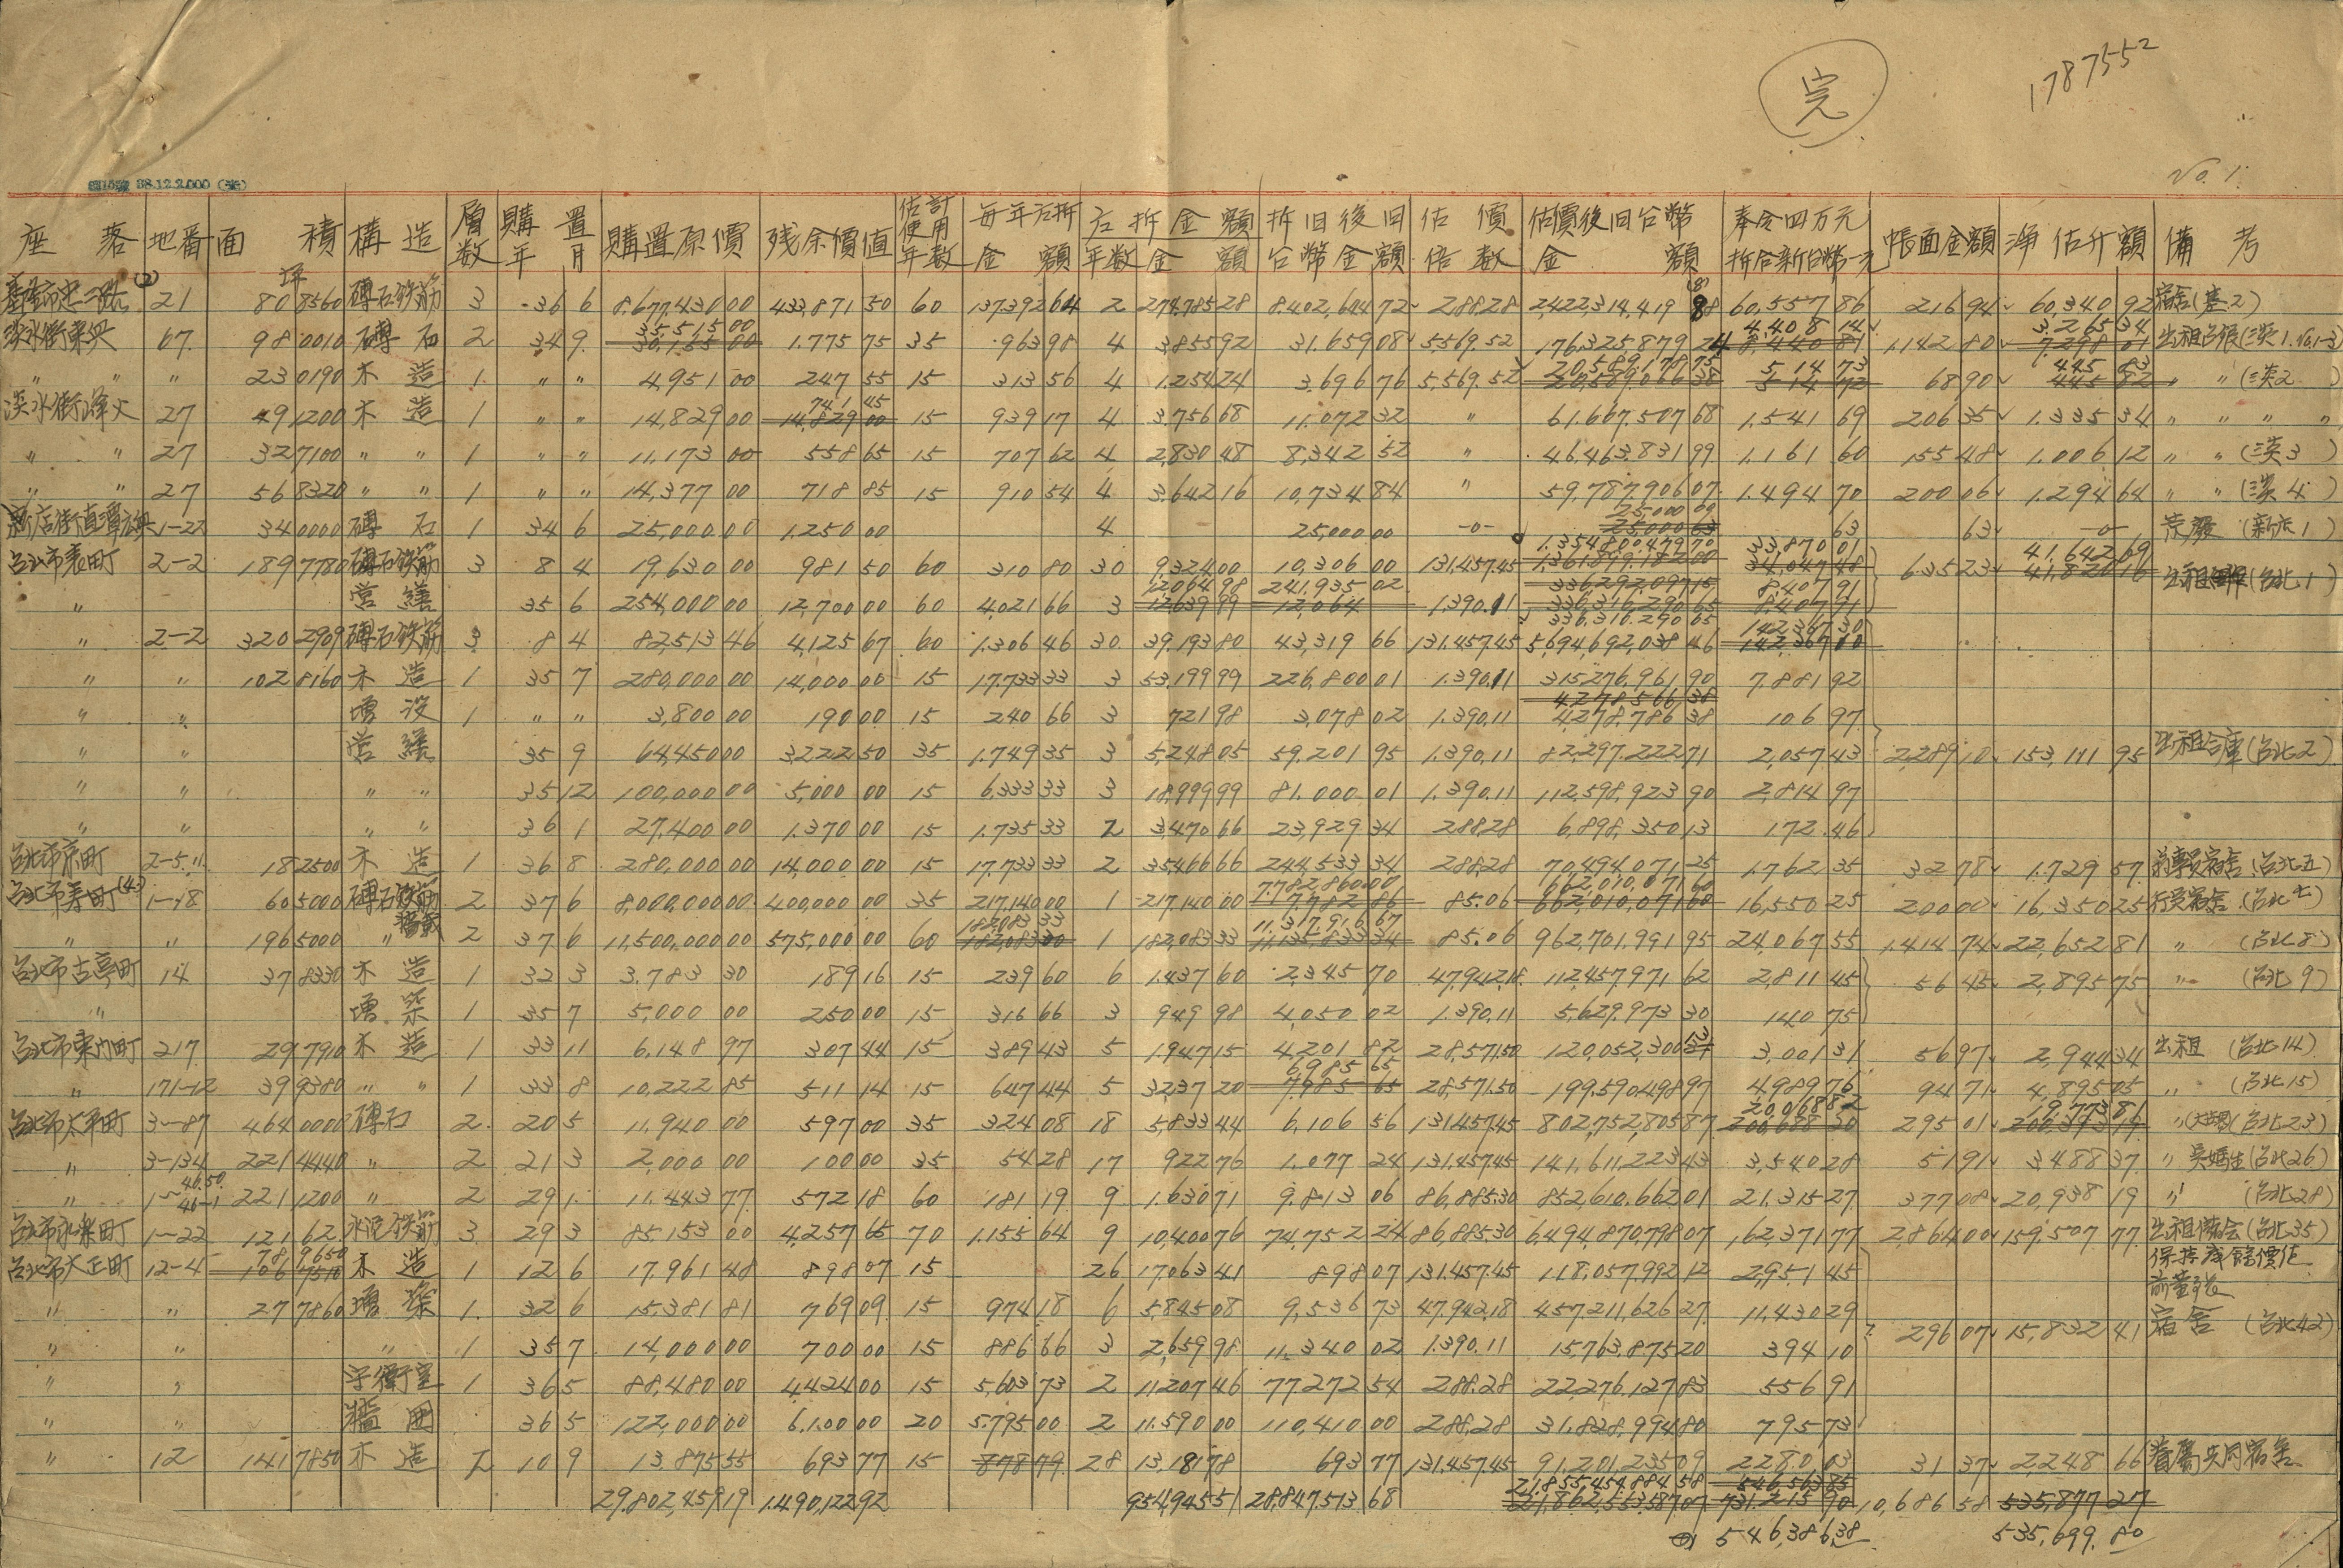 完
1787552
No. 1.
38.12.2.000
座落 地番 面積 構造 層数 購置年月 購置原價 残余價值 估計使用年数 每年応折金額 応折金額 年数 金額 折旧後旧台幣金額 估價倍数 估價後旧台幣金額 奉令四万元折合新台幣一元 帳面金額 淨估升額 備考
坪
21 80 8560 磚石鉄筋 3 36 6 8,677,430 00 433,871 50 60 137,392 64 2 274,785 28 8,402,644 72 288.28 2,422,314,419 88 60,557 86 216 94 60,340 92 宿舍(基2)
35,515 00 4,408 14 3,265 34
淡水街 67 98 0010 磚石 2 34 9 30,155 00 1,775 75 35 963 98 4 3,855 92 31,659 08 5,569.52 176,325,879 24 8,440 81 1,142 80 7,298 01 出租台銀(淡1.
20,589,178 75 5 14 73 445 83
〃 〃 〃 23 0190 木造 1 〃 〃 4,951 00 247 55 15 313 56 4 1,254 24 3,696 76 5,569.52 20,589,066 38 514 72 68 90 445 82 〃 〃 (淡2)
741 45
淡水街烽火 27 49 1200 木造 1 〃 〃 14,829 00 14,829 00 15 939 17 4 3,756 68 11,072 32 〃 61,667,507 68 1,541 69 206 35 1,335 34 〃 〃 〃 〃
〃 〃 27 32 7100 〃 〃 1 〃 〃 11,173 00 558 65 15 707 62 4 2,830 48 8,342 52 〃 46,463,831 99 1,161 60 155 48 1,006 12 〃 〃 (淡3)
〃 〃 27 56 8320 〃 〃 1 〃 〃 14,377 00 718 85 15 910 54 4 3,642 16 10,734 84 〃 59,787,906 07 1,494 70 200 06 1,294 64 〃 〃 (淡4)
25,000 00
新店街直潭 1-22 34 0000 磚石 1 34 6 25,000 00 1,250 00 4 25,000 00 -0- 25,000 63 63 63 -0- 荒廢 (新店1)
1,354,800,479 70 33,870 01 41,642 69
台北市表町 2-2 189 7780 磚石鉄筋 3 8 4 19,630 00 981 50 60 310 80 30 9,324 00 10,306 00 131,457.45 1,361,899,182 00 34,047 48 635 23 41,820 16 出租 (台北1)
12,064 98 241,935 02 336,292,097 15 8,407 91
〃 営繕 35 6 254,000 00 12,700 00 60 4,021 66 3 12,639 99 12,064 1,390.11 336,316,290 65 8,407 91
336,316,290 65 142,367 30
〃 2-2 320 2909 磚石鉄筋 3 8 4 82,513 46 4,125 67 60 1,306 46 30 39,193 80 43,319 66 131,457.45 5,694,692,038 46 142,367 00
〃 〃 102 8160 木造 1 35 7 280,000 00 14,000 00 15 17,733 33 3 53,199 99 226,800 01 1,390.11 315,276,961 90 7,881 92
4,278,566 38
〃 〃 増設 1 〃 〃 3,800 00 190 00 15 240 66 3 721 98 3,078 02 1,390.11 4,278,786 38 106 97
〃 〃 営繕 35 9 64,450 00 3,222 50 35 1,749 35 3 5,248 05 59,201 95 1,390.11 82,297,222 71 2,057 43 2,289 10 153,111 95 出租合庫(台北2)
〃 〃 〃 〃 35 12 100,000 00 5,000 00 15 6,333 33 3 18,999 99 81,000 01 1,390.11 112,598,923 90 2,814 97
〃 〃 〃 〃 36 1 27,400 00 1,370 00 15 1,735 33 2 3,470 66 23,929 34 288.28 6,898,350 13 172 46
台北市京町 2-5.11 18 2500 木造 1 36 8 280,000 00 14,000 00 15 17,733 33 2 35,466 66 244,533 34 288.28 70,494,071 25 1,762 35 32 78 1,729 57 宿舍 (台北五)
7,782,860 00 662,010,071 60
台北市寿町(4) 1-18 60 5000 磚石鉄筋 2 37 6 8,000,000 00 400,000 00 35 217,140 00 1 217,140 00 7782 86 85.06 662,010,071 60 16,550 25 200 00 16,350 25 行員宿舍 (台北七)
182,083 33 11,317,916 67
〃 〃 196 5000 〃 2 37 6 11,500,000 00 575,000 00 60 182,083 00 1 182,083 33 11,135,833 34 85.06 962,701,991 95 24,067 55 1,414 74 22,652 81 〃 (台北8)
台北市古亭町 14 37 8330 木造 1 32 3 3,783 30 189 16 15 239 60 6 1,437 60 2,345 70 47,942.18 112,457,971 62 2,811 45 56 45 2,895 75 〃 (台北9)
〃 増築 1 35 7 5,000 00 250 00 15 316 66 3 949 98 4,050 02 1,390.11 5,629,973 30 140 75
台北市東門町 217 29 7910 木造 1 33 11 6,148 97 307 44 15 389 43 5 1,947 15 4,201 82 28,571.50 120,052,300 13 3,001 31 56 97 2,944 34 出租 (台北14)
6,985 65
〃 171-12 39 9380 〃 〃 1 33 8 10,222 85 511 14 15 647 44 5 3,237 20 7,985 65 28,571.50 199,590,498 97 4,989 76 94 71 4,895 05 〃 (台北15)
20,068 82 19,773 81
台北市太平町 3-87 464 0000 磚石 2 20 5 11,940 00 597 00 35 324 08 18 5,833 44 6,106 56 131,457.45 802,752,805 87 200,688 20 295 01 200,393 19 〃 (台北23)
〃 3-134 221 4440 〃 2 21 3 2,000 00 100 00 35 54 28 17 922 76 1,077 24 131,457.45 141,611,223 43 3,540 28 51 91 3,488 37 〃 (台北26)
46.50
〃 1~46-1 221 1200 〃 2 29 1 11,443 77 572 18 60 181 19 9 1,630 71 9,813 06 86,885.30 852,610,662 01 21,315 27 377 08 20,938 19 〃 (台北28)
台北市永楽町 1-22 121 62 水泥鉄筋 3 29 3 85,153 00 4,257 65 70 1,155 64 9 10,400 76 74,752 24 86,885.30 6,494,870,798 07 162,371 77 2,864 00 159,507 77 出租 (台北35)
78 9650 保持
台北市大正町 12-4 106 7510 木造 1 12 6 17,961 48 898 07 15 26 17,063 41 898 07 131,457.45 118,057,992 12 2,951 45
〃 〃 27 7860 増築 1 32 6 15,381 81 769 09 15 974 18 6 5,845 08 9,536 73 47,942.18 457,211,626 27 11,430 29
〃 〃 〃 1 35 7 14,000 00 700 00 15 886 66 3 2,659 98 11,340 02 1,390.11 15,763,875 20 394 10 296 07 15,832 41 宿舍 (台北42)
〃 〃 守衛室 1 36 5 88,480 00 4,424 00 15 5,603 73 2 11,207 46 77,272 54 288.28 22,276,127 83 556 91
〃 〃 牆囲 36 5 122,000 00 6,100 00 20 5,795 00 2 11,590 00 110,410 00 288.28 31,828,994 80 795 73
〃 12 141 7850 木造 1 10 9 13,875 55 693 77 15 878 79 28 13,181 78 693 77 131,457.45 91,201,235 09 2,280 03 31 37 2,248 66 眷屬共同宿舍
21,855,454,884 58 546,563 85
29,802,459 19 1,490,122 92 954,945 51 28,847,513 68 21,862,553,587 05 731,215 90 10,686 58 535,877 27
546,386.38 535,699.80